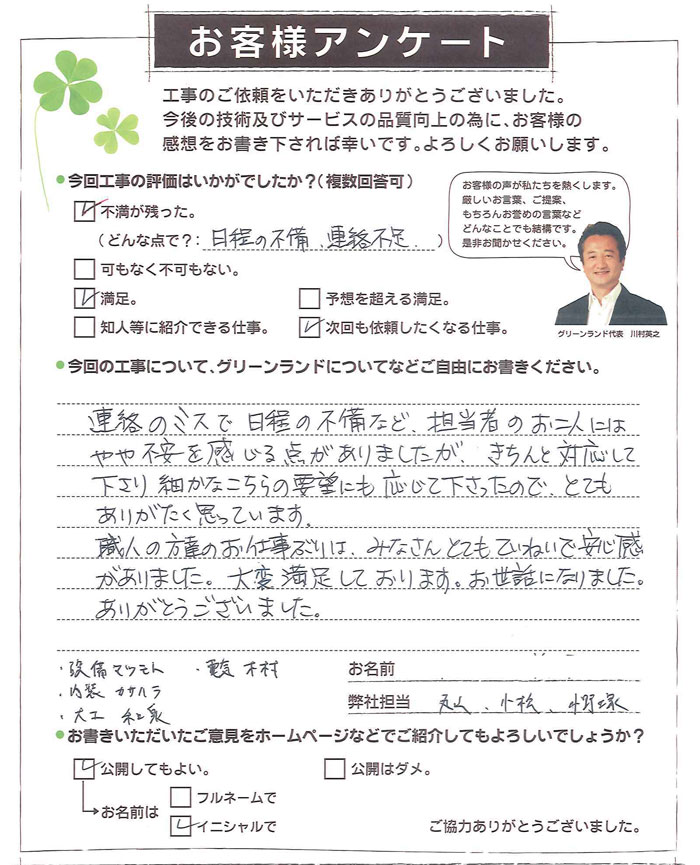 お客様アンケート
工事のご依頼をいただきありがとうございました。
今後の技術及びサービスの品質向上の為に、お客様の
感想をお書き下されば幸いです。よろしくお願いします。
●今回工事の評価はいかがでしたか?(複数回答可)
不満が残った。
(どんな点で?: 日程の不備、連絡不足、)
可もなく不可もない。
満足。
予想を超える満足。
知人等に紹介できる仕事。
次回も依頼したくなる仕事。
お客様の声が私たちを熱くします。
厳しいお言葉、ご提案、
もちろんお誉めの言葉など
どんなことでも結構です。
是非お聞かせください。
グリーンランド代表 川村英之
●今回の工事について、グリーンランドについてなどご自由にお書きください。
連絡のミスで日程の不備など、担当者のお二人には
やや不安を感じる点がありましたが、きちんと対応して
下さり細かなこちらの要望にも応じて下さったので、とても
ありがたく思っています。
職人の方達のお仕事ぶりは、みなさんとてもていねいで安心感
がありました。大変満足しております。お世話になりました。
ありがとうございました。
・設備マツモト ・電気 木村
・内装 カサハラ
・大工
お名前
弊社担当 丸山、小松、小野塚
●お書きいただいたご意見をホームページなどでご紹介してもよろしいでしょうか?
公開してもよい。
公開はダメ。
お名前は
フルネームで
イニシャルで
ご協力ありがとうございました。